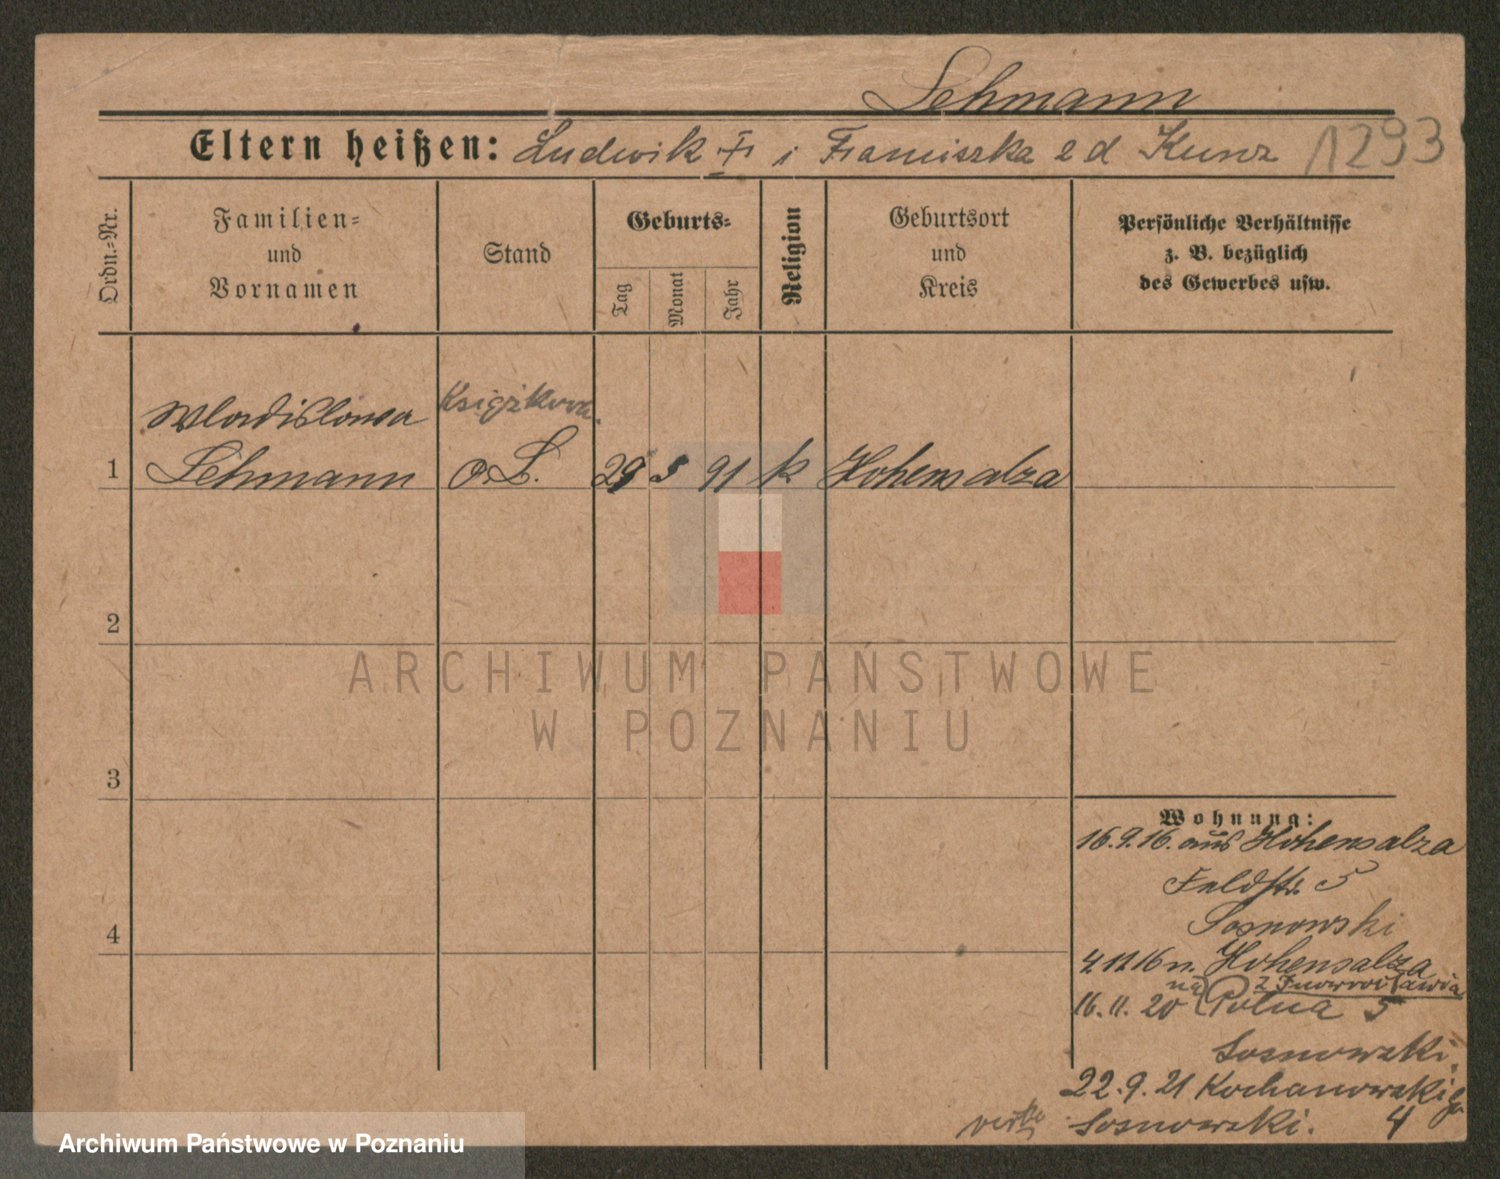 Lehmann
Eltern heißen: Ludwik i Franciszka z d Kunz 1293
Ordn.-Nr.
Familien-
und
Vornamen
Stand
Geburts-
Tag
Monat
Jahr
Religion
Geburtsort
und
Kreis
Persönliche Verhältnisse
z. B. bezüglich
des Gewerbes usw.
Wladislawa Książkowa.
1 Lehmann o. L. 29 5 91 k Hohensalza
2
3
4
Wohnung:
16.9.16. aus Hohensalza
Feldstr. 5
Sosnowski
4.12.16 n. Hohensalza
na z Inowrocławia
16.11.20 Polna 5
Sosnowski.
22.9.21 Kochanowskiego
Sosnowski. 4
ARCHIWUM PAŃSTWOWE
W POZNANIU
Archiwum Państwowe w Poznaniu